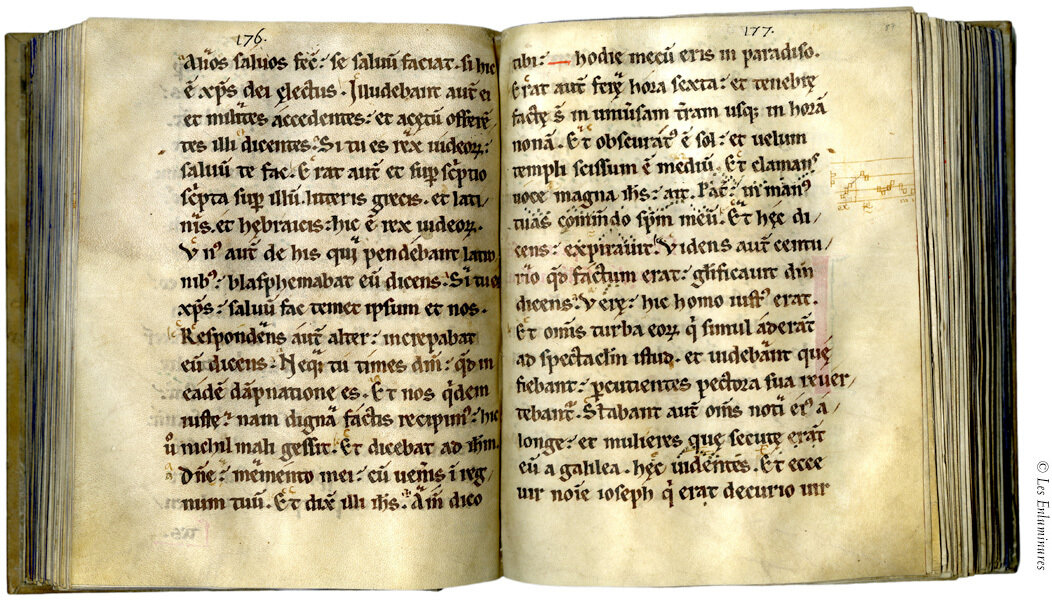 176.
Alios saluos fec̄: se saluū faciat. si hic
ē xp̄s dei ęlectus. Illudebant aut̄ ei
et milites accedentes: et acętū offerē
tes illi dicentes. Si tu es rex iudeoꝝ:
saluū te fac. Erat aut̄ et suꝑ sc̄ptio
sc̄pta suꝑ illū. litteris grecis. et lati
nis. et hebraicis: hic ē rex iudeoꝝ.
Vnꝰ aut̄ de his qui pendebant latro
nibꝰ: blasphemabat eū dicens. Si tu es
xp̄s: saluū fac temet ipsum et nos.
Respondens aut̄ alter: increpabat
eū dicens. Neqꝫ tu times dm̄: qd̄ in
eadē dāpnatione es. Et nos qͥdem
iuste: nam digna factis recipimꝰ: hic
ů nichil mali gessit. Et dicebat ad ihm̄.
Dn̄e: memento mei: cū uenis ī reg
num tuū. Et dix̄ illi ihs̄. Am̄ dico
177.
87
tibi: hodie mecū eris in paradiso.
Erat aut̄ ferę hora sexta: et tenebrę
factę s̄ in uniūsam t̄ram usqꝫ in horā
nonā. Et obscuratꝰ ē sol: et uelum
templi scissum ē mediū. Et clamanˢ
uoce magna ihs̄: ait. Pat̄: in manꝰ
tuas cōmendo sp̄m meū. Et hęc di/
cens: expirauit. Videns aut̄ centu/
rio qd̄ factum erat: glificauit dm̄
dicens. Verę: hic homo iustꝰ erat.
Et omīs turba eoꝝ qͥ simul aderāt
ad spectaclm̄ istud. et uidebant quę
fiebant: ꝑcutientes pectora sua reuer/
tebant̄. Stabant aut̄ om̄s noti eiꝰ a/
longe: et mulieres quę secutę erāt
eū a galilea. hęc uidentes. Et ecce
uir noīe ioseph qͥ erat decurio uir
© Les Enluminures